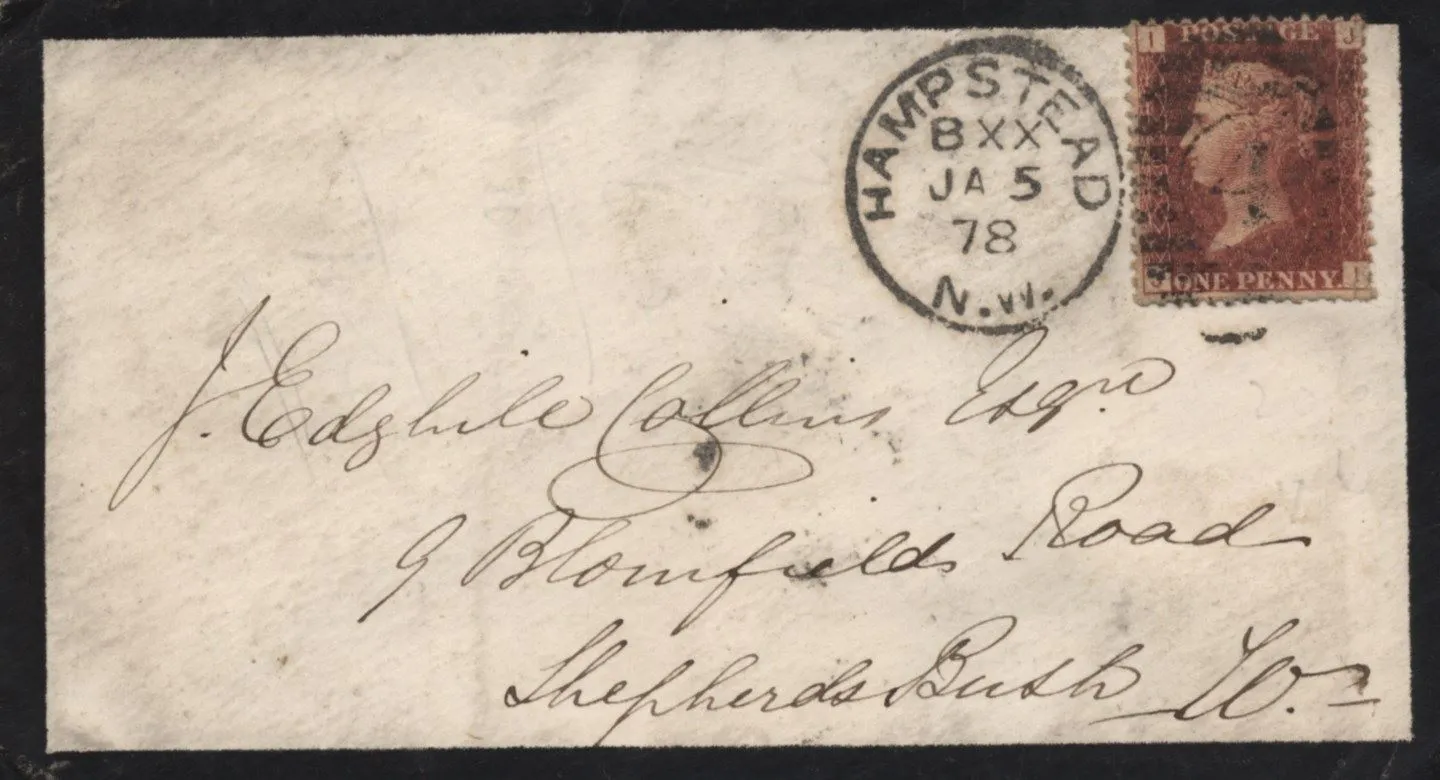 HAMPSTEAD
B XX
JA 5
78
N.W.
I POSTAGE J
J ONE PENNY I
J. Edghile Collins Esqre
9 Blomfields Road
Shepherds Bush W.